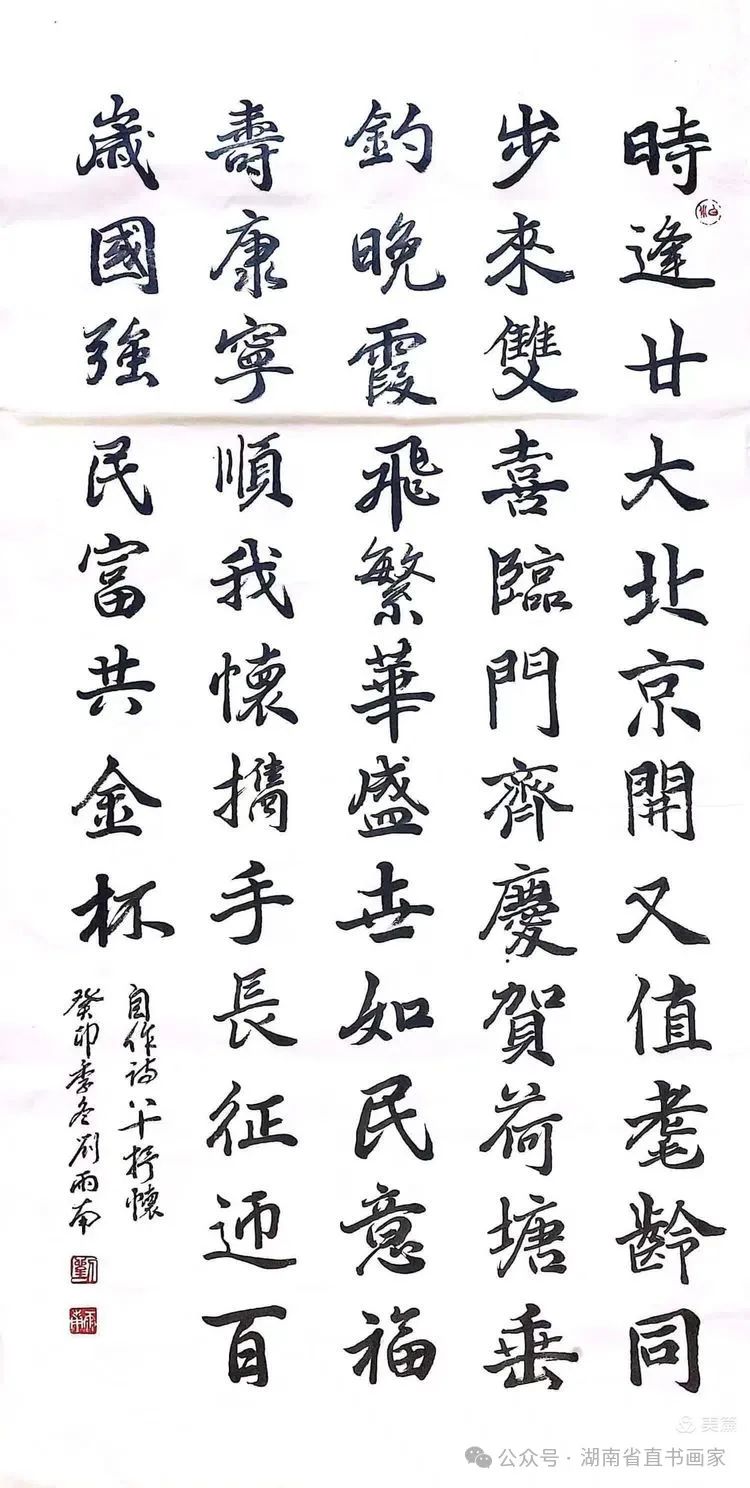 時逢廿大北京開又值耄齡同
步來雙喜臨門齊慶賀荷塘垂
釣晚霞飛繁華盛世如民意福
壽康寧順我懷攜手長征迎百
歲國強民富共金杯
自作詩八十抒懷
癸卯季冬劉雨南
劉
雨南
美篇
公众号·湖南省直书画家